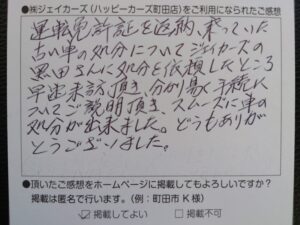 ●㈱ジェイカーズ（ハッピーカーズ町田店）をご利用になられたご感想
運転免許証を返納、乗っていた
古い車の処分についてジェイカーズの
黒田さんに処分を依頼したところ
早速来訪頂き、分かり易く手続に
ついてご説明頂き、スムーズに車の
処分が出来ました。どうもありが
とうございました。
●頂いたご感想をホームページに掲載してもよろしいですか？
掲載は匿名で行います。（例：町田市 K 様）
☑掲載してよい　□掲載不可